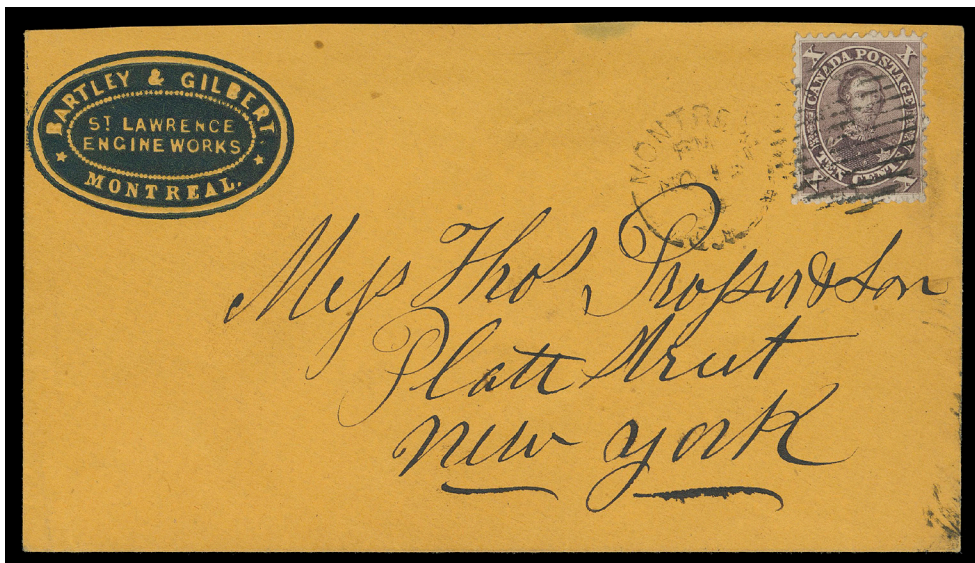 BARTLEY & GILBERT
ST LAWRENCE
ENGINE WORKS
MONTREAL.
X X
CANADA POSTAGE
TEN CENTS
X X
MONTREAL
PM
Mess Thos Prosser & Son
Platt Street
New York